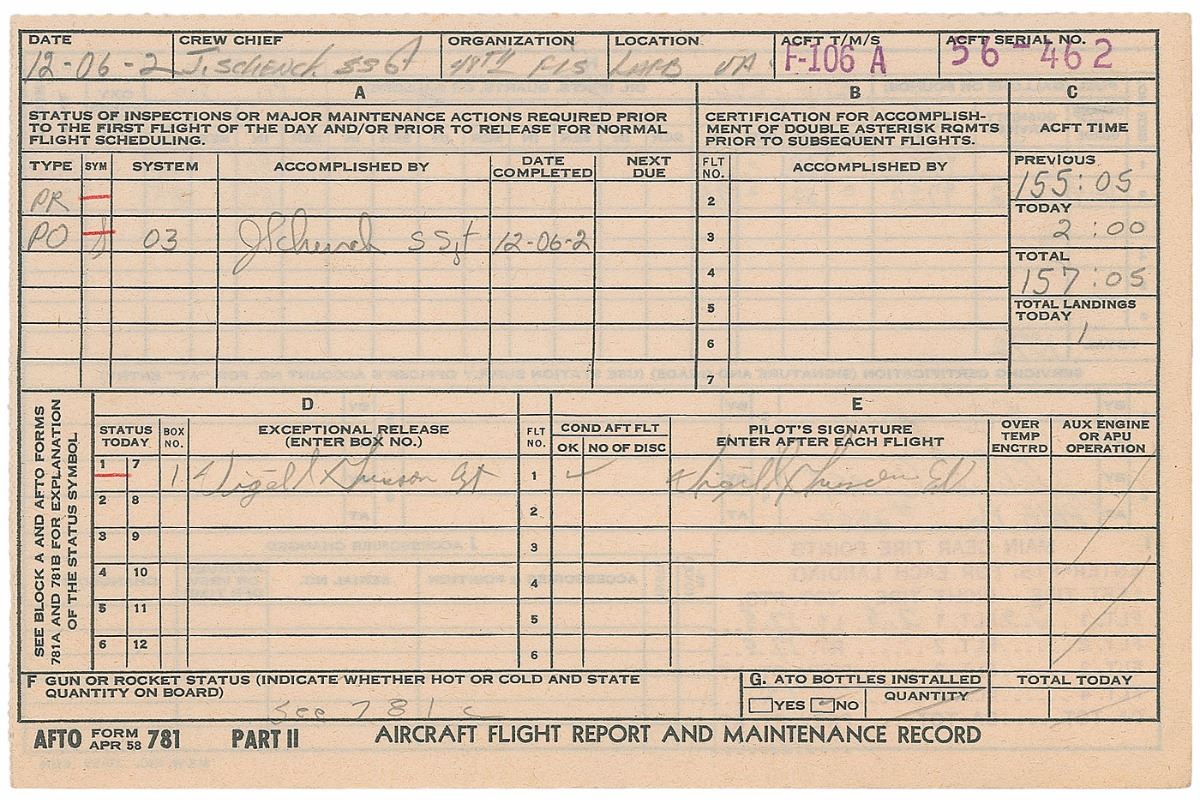 DATE CREW CHIEF ORGANIZATION LOCATION ACFT T/M/S ACFT SERIAL NO.
12-06-2 J. SCHENCK SSGT 48TH FIS LAFB VA F-106 A 56-462
A B C
STATUS OF INSPECTIONS OR MAJOR MAINTENANCE ACTIONS REQUIRED PRIOR
TO THE FIRST FLIGHT OF THE DAY AND/OR PRIOR TO RELEASE FOR NORMAL
FLIGHT SCHEDULING.
CERTIFICATION FOR ACCOMPLISH-
MENT OF DOUBLE ASTERISK RQMTS
PRIOR TO SUBSEQUENT FLIGHTS.
ACFT TIME
TYPE SYM SYSTEM ACCOMPLISHED BY DATE COMPLETED NEXT DUE FLT NO. ACCOMPLISHED BY
PREVIOUS
155:05
PR 2
TODAY
2:00
PO 03 J Schenck SSgt 12-06-2 3
TOTAL
157:05
4
TOTAL LANDINGS
TODAY
1
5
6
7
SEE BLOCK A AND AFTO FORMS
781A AND 781B FOR EXPLANATION
OF THE STATUS SYMBOL
D E
STATUS TODAY BOX NO. EXCEPTIONAL RELEASE
(ENTER BOX NO.)
FLT NO. COND AFT FLT
OK NO OF DISC
PILOT'S SIGNATURE
ENTER AFTER EACH FLIGHT
OVER TEMP ENCTRD
AUX ENGINE OR APU OPERATION
1 7 1 1 ✓
2 8 2
3 9 3
4 10 4
5 11 5
6 12 6
F GUN OR ROCKET STATUS (INDICATE WHETHER HOT OR COLD AND STATE
QUANTITY ON BOARD)
See 781 c
G. ATO BOTTLES INSTALLED
YES NO QUANTITY
TOTAL TODAY
AFTO FORM APR 58 781 PART II AIRCRAFT FLIGHT REPORT AND MAINTENANCE RECORD